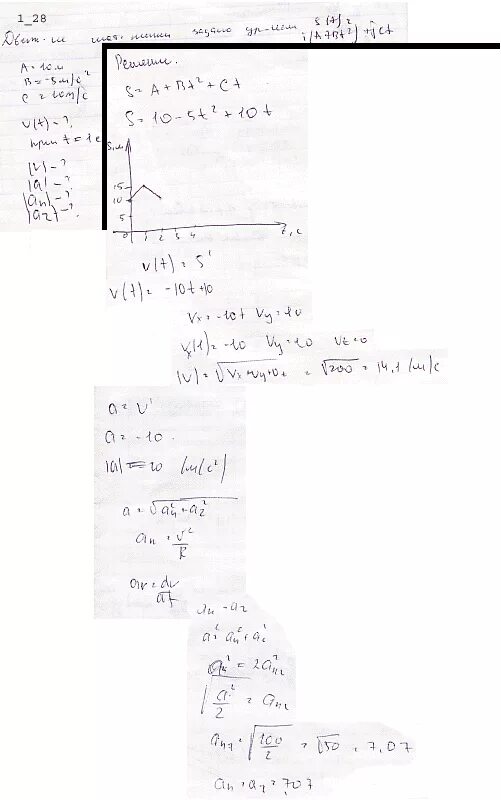 1_28
Движ-ие мат. точки задано ур-ием S(t) =
i(A+Bt²)+jCt
A = 10 м
B = -5 м/с²
C = 10 м/с
v(t) = ?
при t = 1 с
|v| - ?
|a| - ?
|an| - ?
|aτ| - ?
Решение.
S = A + Bt² + Ct
S = 10 - 5t² + 10t
S, м
15
10
5
0 1 2 3 4 t, c
v(t) = S'
v(t) = -10t+10
Vx = -10t Vy = 10
Vx(1) = -10 Vy = 10 Vz = 0
|V| = √200 = 14,1 (м/с)
a = v'
a = -10.
|a| = 10 (м/с²)
a = √an²+aτ²
an = v²/R
aτ = dv/dt
an = aτ
a² = an² + aτ²
a² = 2an²
√a²/2 = an
an = √100/2 = √50 = 7,07
an = aτ = 7,07